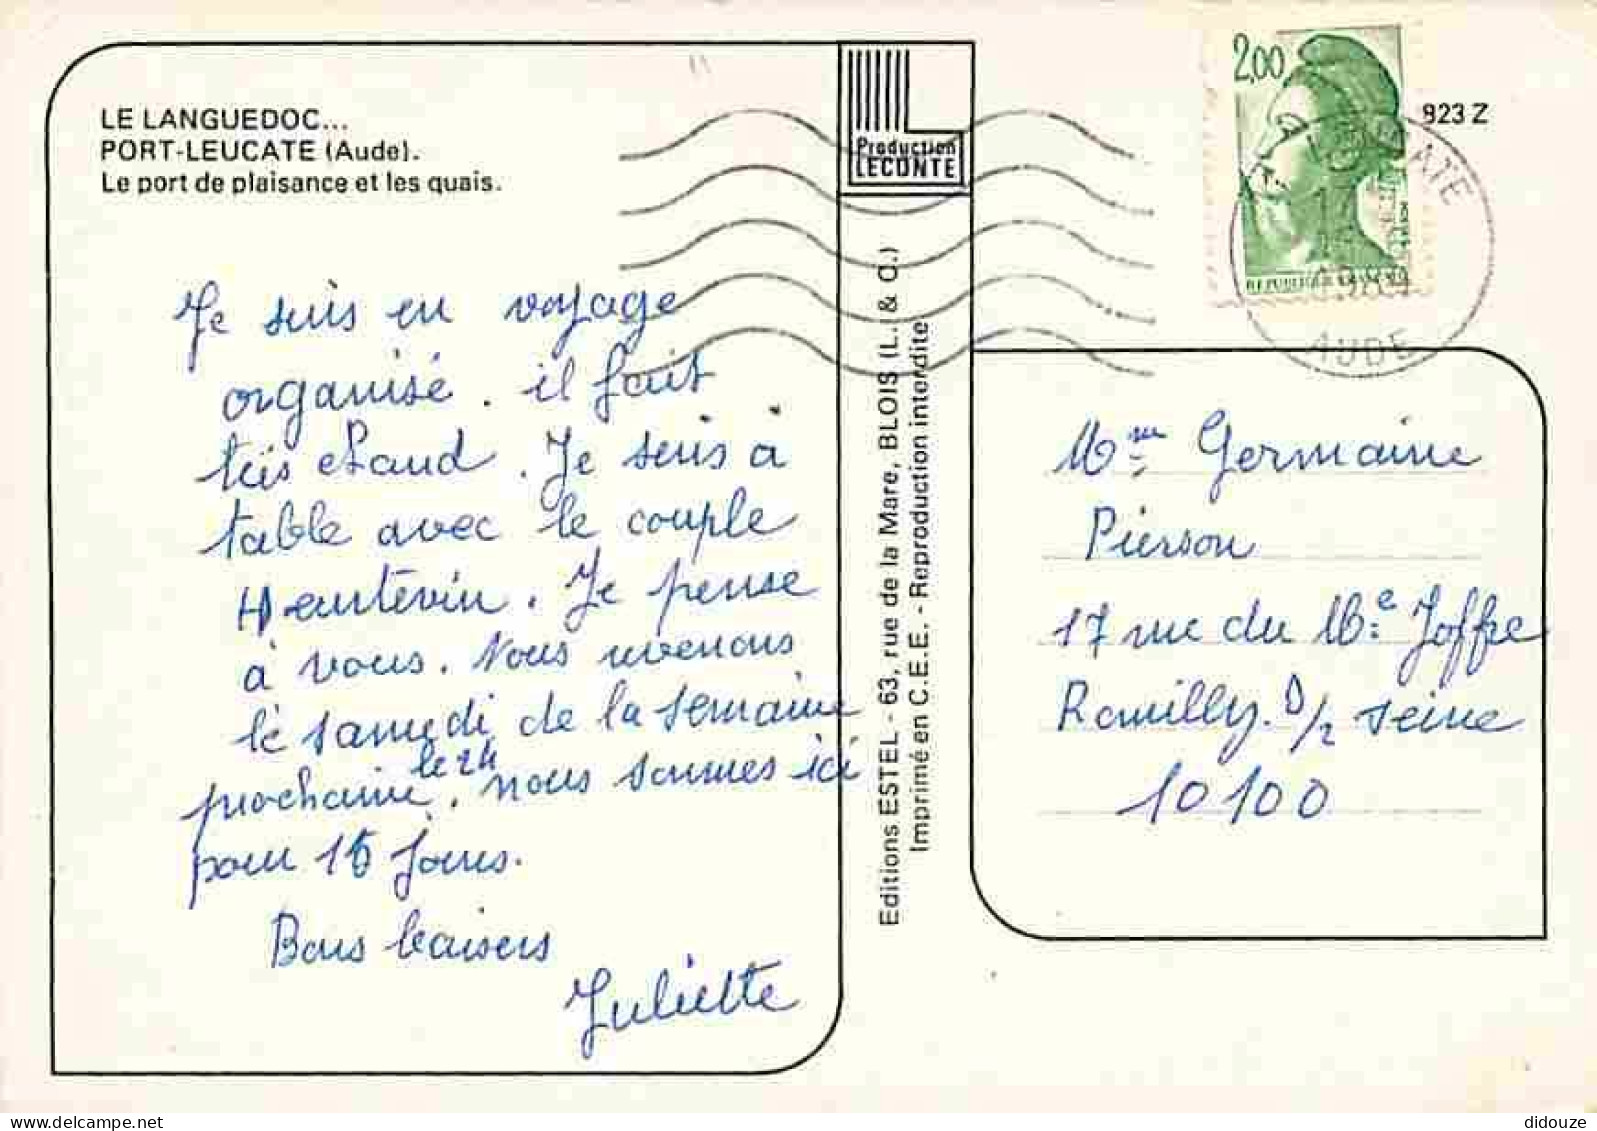 LE LANGUEDOC...
PORT-LEUCATE (Aude).
Le port de plaisance et les quais.
Je suis en voyage
organisé. il fait
très chaud. Je suis à
table avec le couple
Heurtevin. Je pense
à vous. Nous revenons
le samedi de la semaine
le 24
prochaine. nous sommes ici
pour 15 jours.
Bons baisers
Juliette
Production
LECONTE
Editions ESTEL - 63, rue de la Mare, BLOIS (L. & C.)
Imprimé en C.E.E. - Reproduction interdite
2,00
REPUBLIQUE
923 Z
AUDE
Mme Germaine
Pierson
17 rue du Mc: Joffre
Romilly. S/ Seine
10100
didouze | Delcampe.net